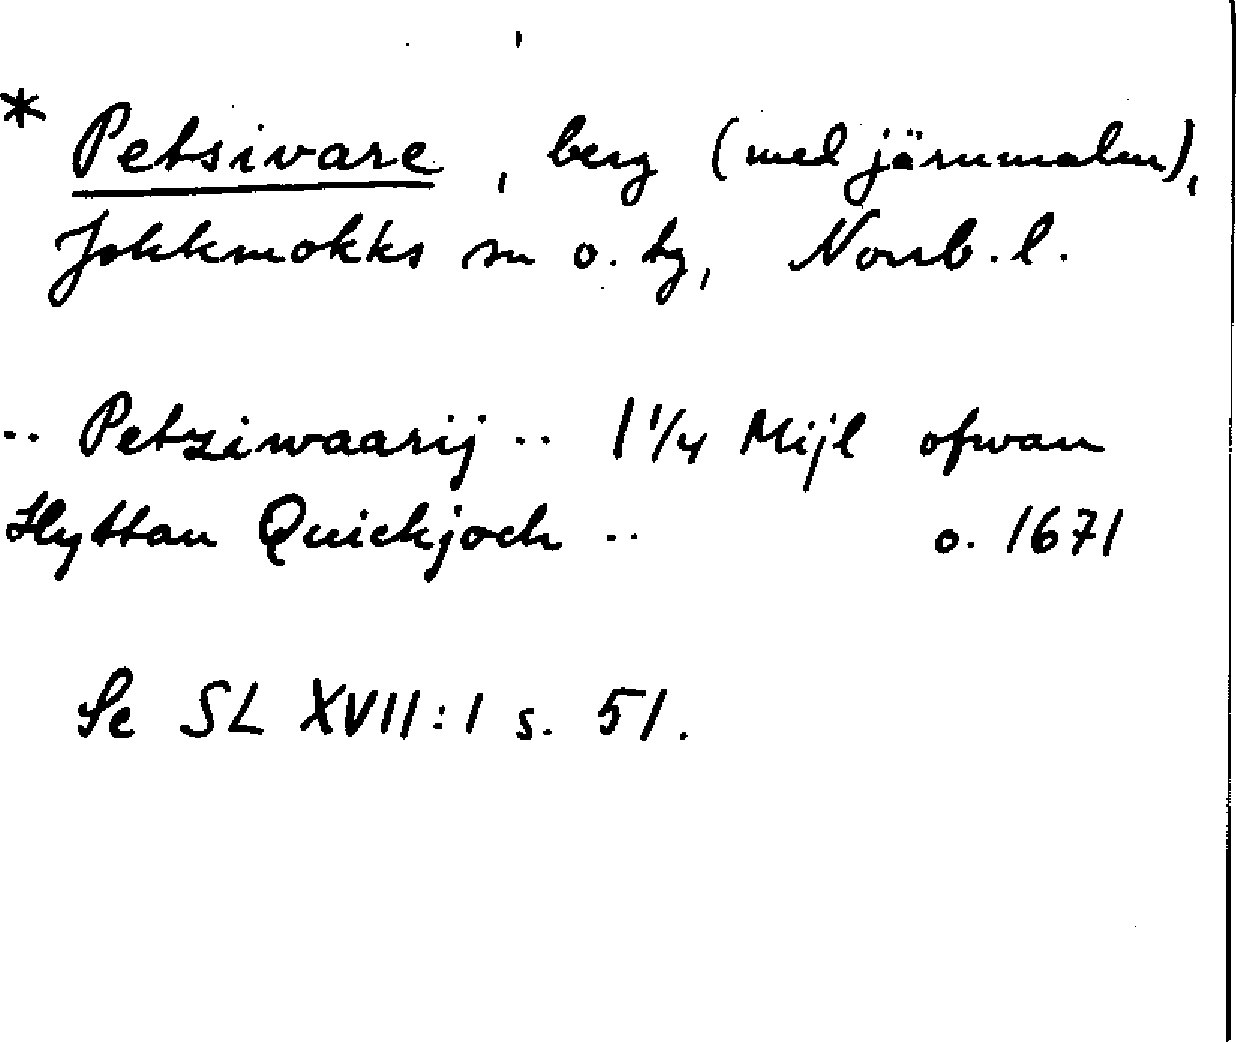 * Petsivare, berg (med järnmalm),
Jokkmokks sn o. tg, Norrb. l.
.. Petziwaarij .. 1 1/4 Mijl ofwan
Hyttan Quickjock ..  o. 1671
Se SL XVII:1 s. 51.